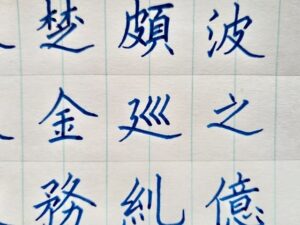 波之億
頗廵糺
楚金務